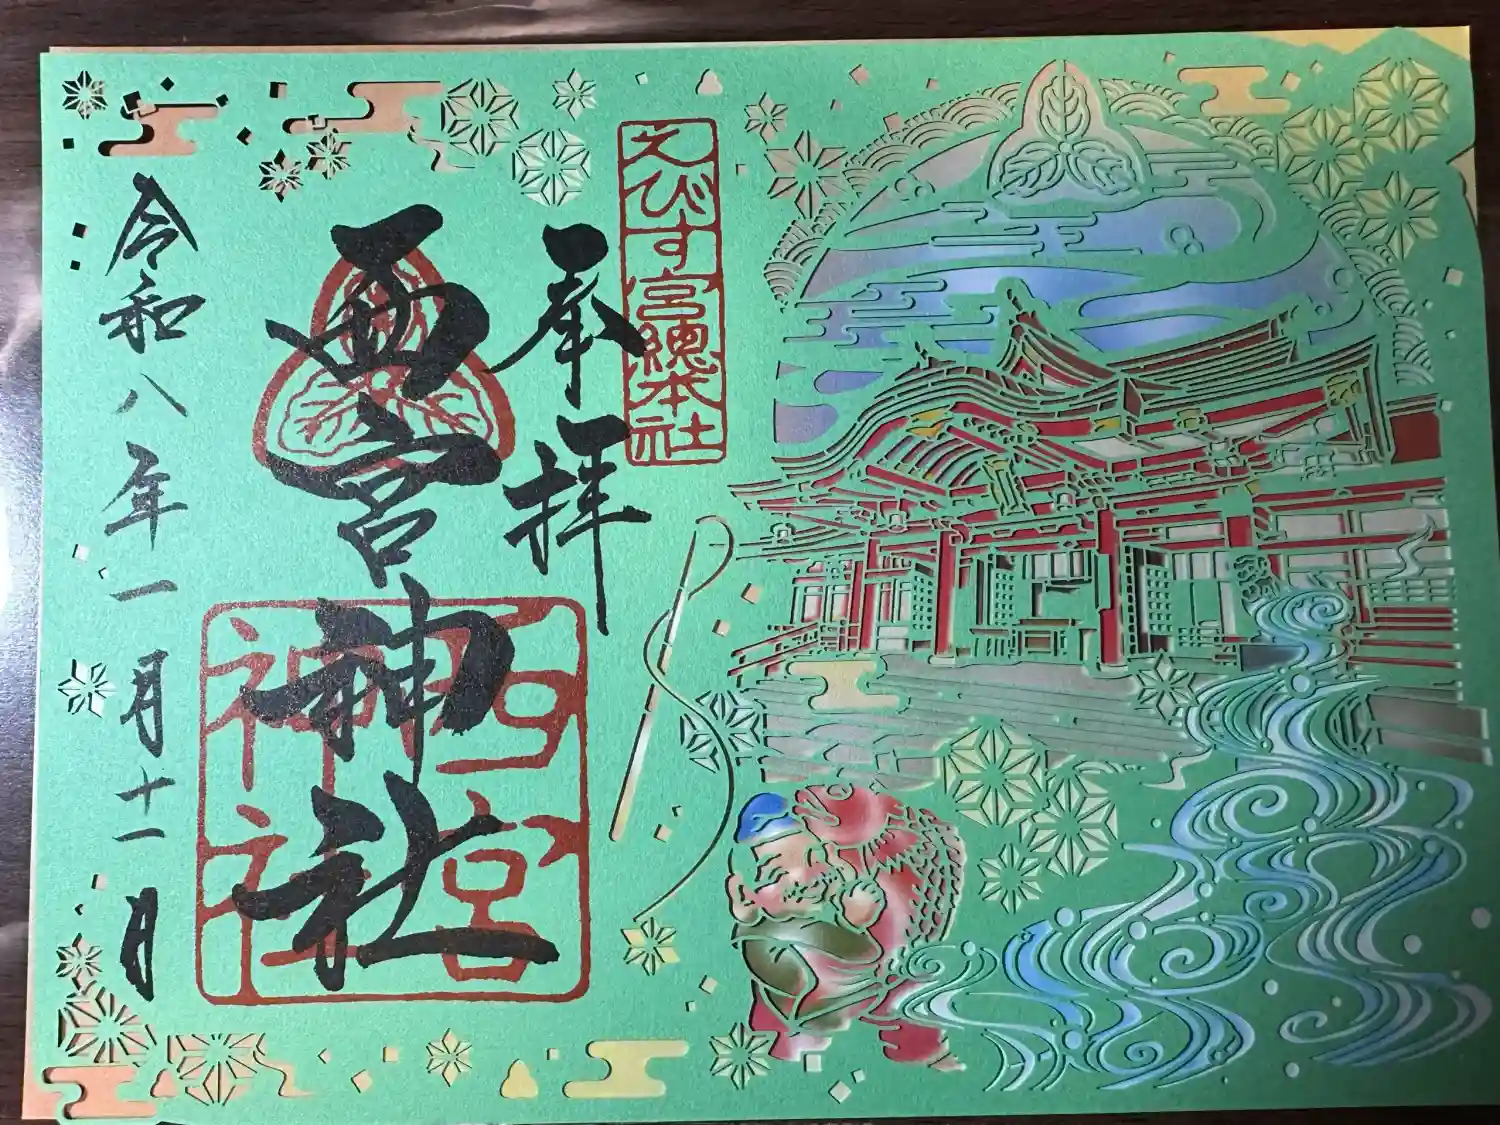 えびす宮總本社
奉拝
西宮神社
西宮神社
令和八年一月十一月